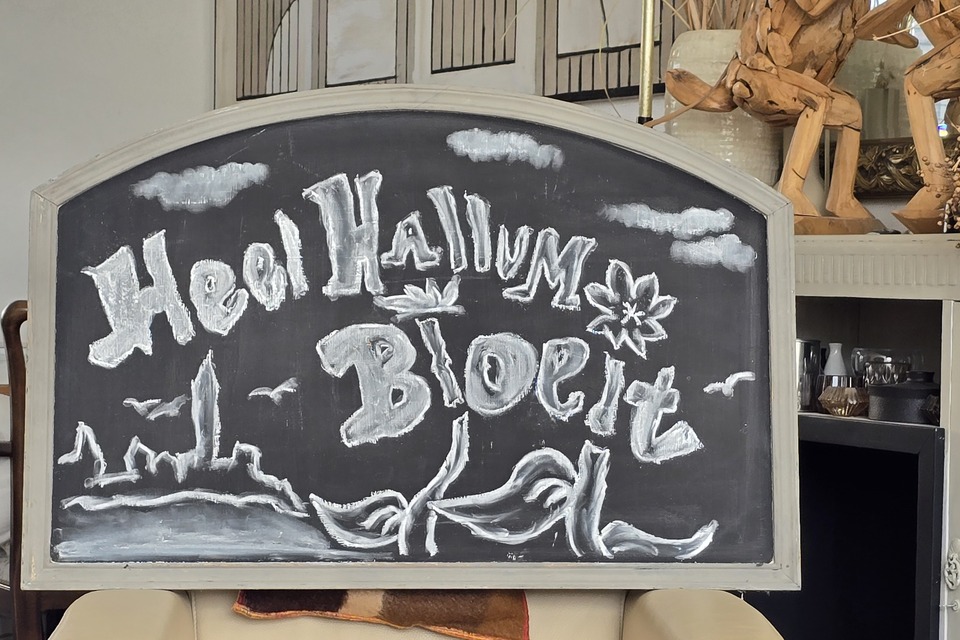 Heel Hallum
Bloeit